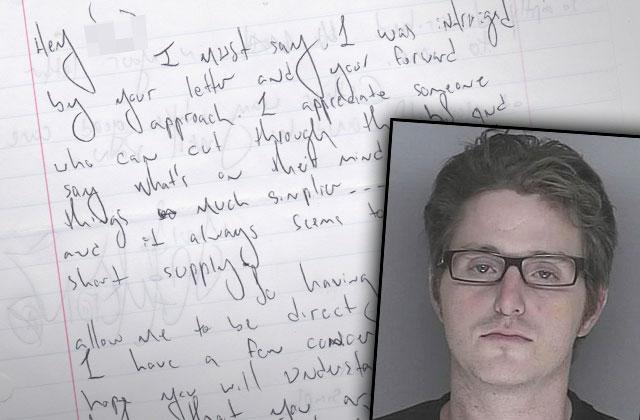 Hey I must say, I was intrigued
by your letter and your forward
approach. I appreciate someone
who can cut through the and
say what's on their mind
things much simplier ---
and it always seems to
short supply. So having
allow me to be direct
I have a few concer
hope you will understa
that you ar